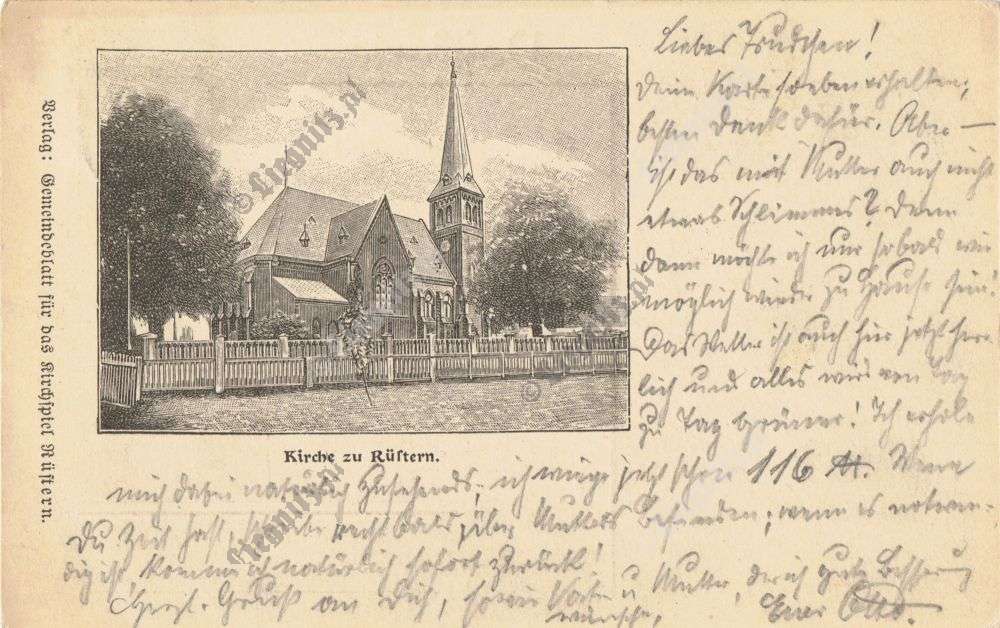 Liebes Trudchen!
Deine Karte soeben erhalten,
besten Dank dafür. Aber
ist das mit Mutter auch nicht
etwas Schlimmes? Denn
dann möchte ich nur sobald wie
möglich wieder zu Hause sein!
Das Wetter ist auch hier jetzt herr-
lich und alles wird von Tag
zu Tag grüner! Ich erhole
mich dabei natürlich zusehends, ich wiege jetzt schon 116 ℔. Wenn
Du Zeit hast, schreibe recht bald über Mutters Befinden; wenn es notwen-
dig ist, komme ich natürlich sofort zurück!
Herzl. Gruß an Dich, sowie Vater u. Mutter, der ich gute Besserung
wünsche, Euer Otto.
Kirche zu Rüstern.
Verlag: Gemeindeblatt für das Kirchspiel Rüstern.
© Liegnitz.pl
Liegnitz.pl
©
Liegnitz.pl